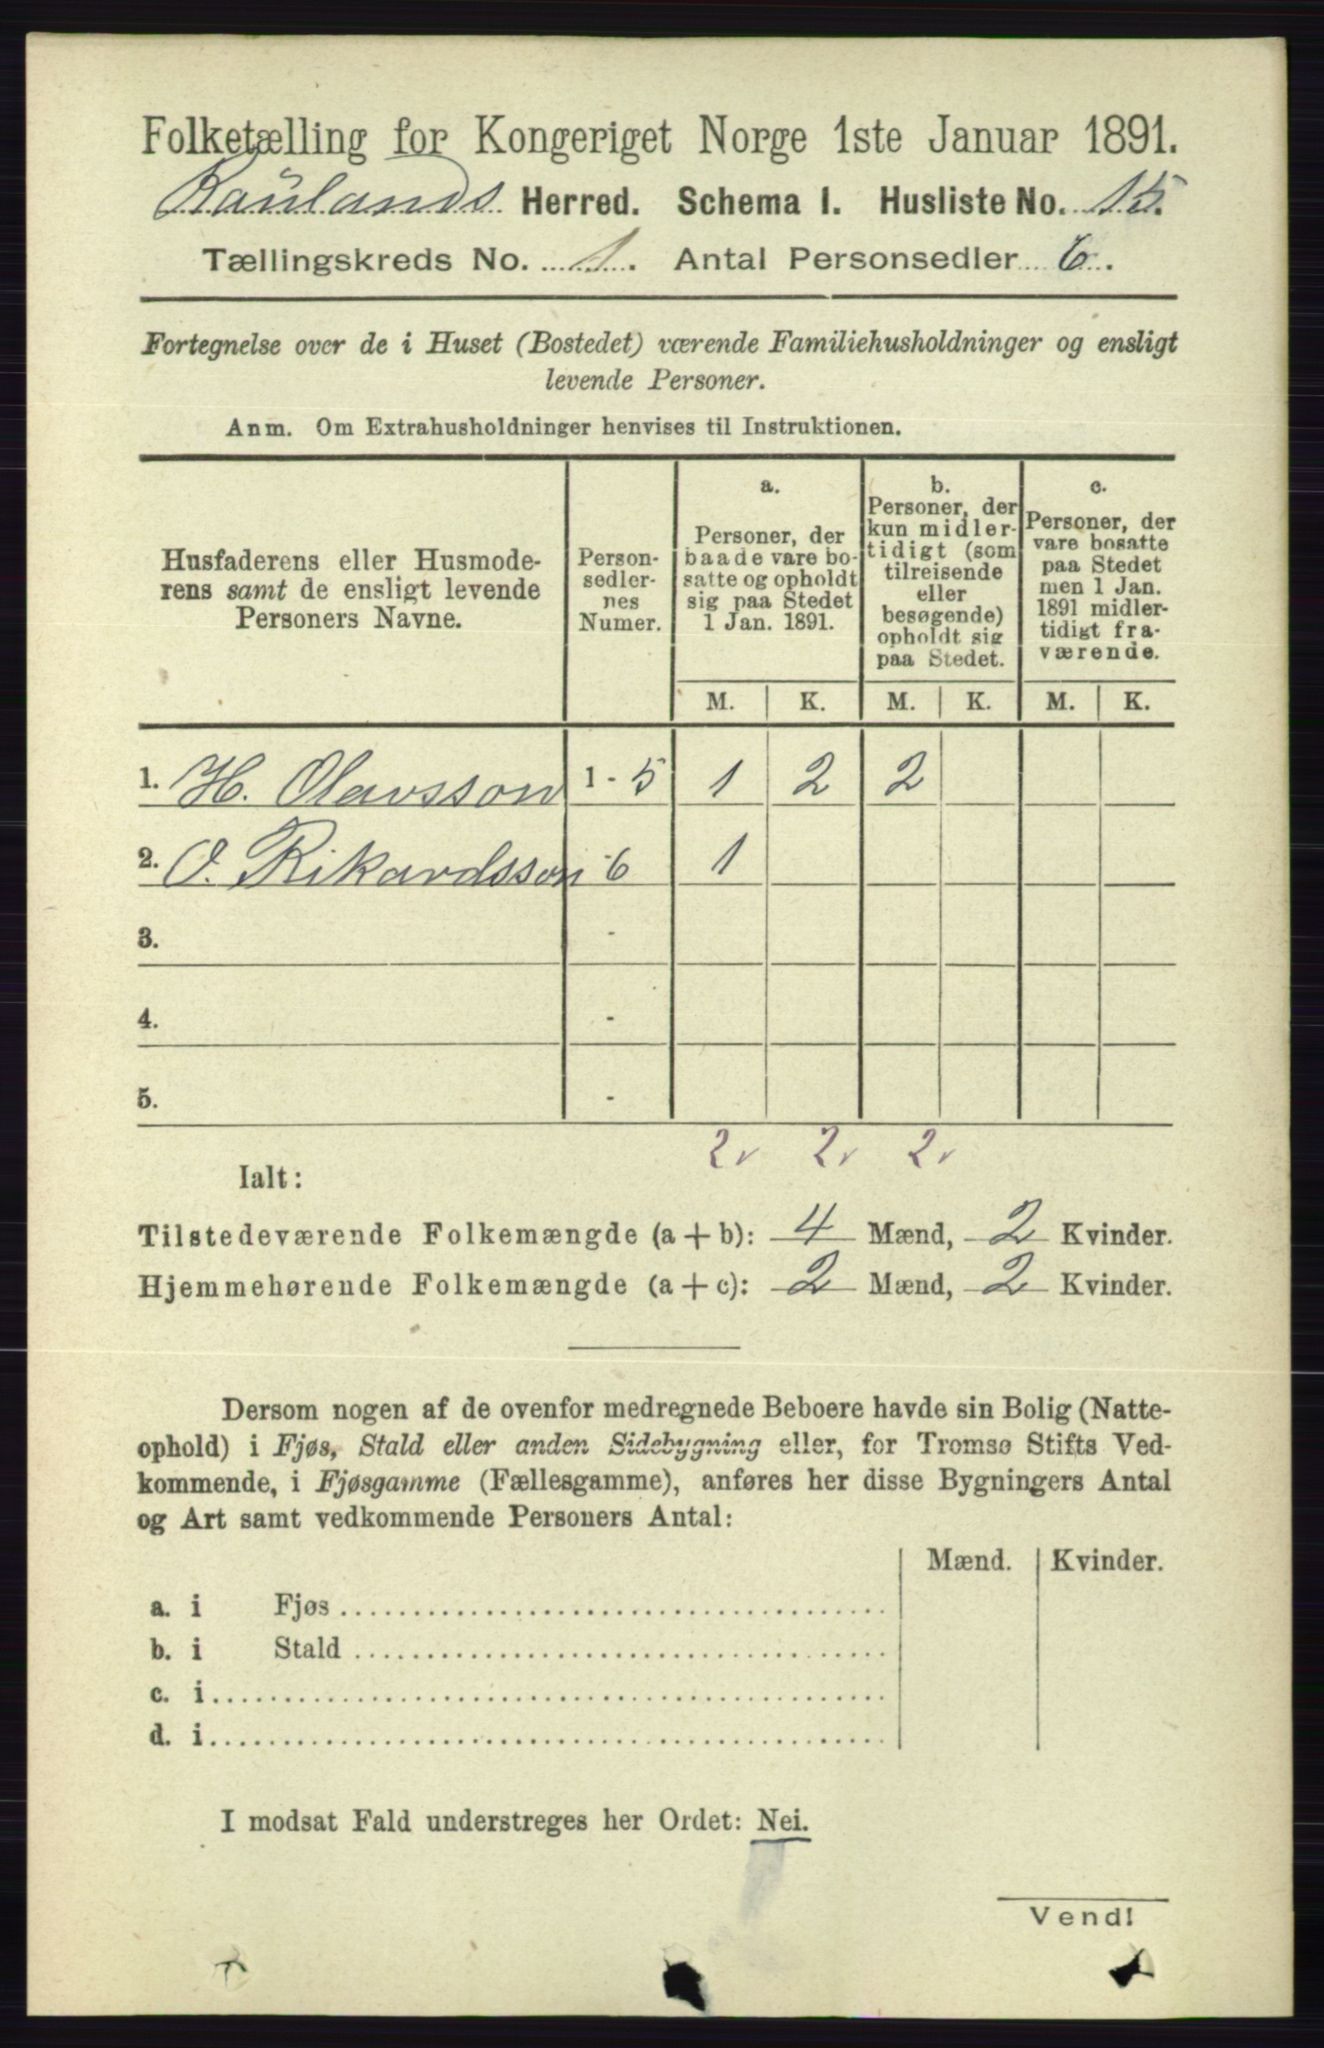 Folketælling for Kongeriget Norge 1ste Januar 1891.
Raulands Herred. Schema I. Husliste No. 15.
Tællingskreds No. 1. Antal Personsedler 6.
Fortegnelse over de i Huset (Bostedet) værende Familiehusholdninger og ensligt
levende Personer.
Anm. Om Extrahusholdninger henvises til Instruktionen.
Husfaderens eller Husmode-
rens samt de ensligt levende
Personers Navne.
Person-
sedler-
nes
Numer.
a.
Personer, der
baade vare bo-
satte og opholdt
sig paa Stedet
1 Jan. 1891.
b.
Personer, der
kun midler-
tidigt (som
tilreisende
eller
besøgende)
opholdt sig
paa Stedet.
c.
Personer, der
vare bosatte
paa Stedet
men 1 Jan.
1891 midler-
tidigt fra-
værende.
M. K. M. K. M. K.
1. H. Olavsson 1 - 5 1 2 2
2. O. Rikardsson - 6 1
3. -
4. -
5. -
2 v 2 v 2 v
Ialt:
Tilstedeværende Folkemængde (a + b): 4 Mænd, 2 Kvinder.
Hjemmehørende Folkemængde (a + c): 2 Mænd, 2 Kvinder.
Dersom nogen af de ovenfor medregnede Beboere havde sin Bolig (Natte-
ophold) i Fjøs, Stald eller anden Sidebygning eller, for Tromsø Stifts Ved-
kommende, i Fjøsgamme (Fællesgamme), anføres her disse Bygningers Antal
og Art samt vedkommende Personers Antal:
Mænd. Kvinder.
a. i Fjøs
b. i Stald
c. i
d. i
I modsat Fald understreges her Ordet: Nei.
Vend!